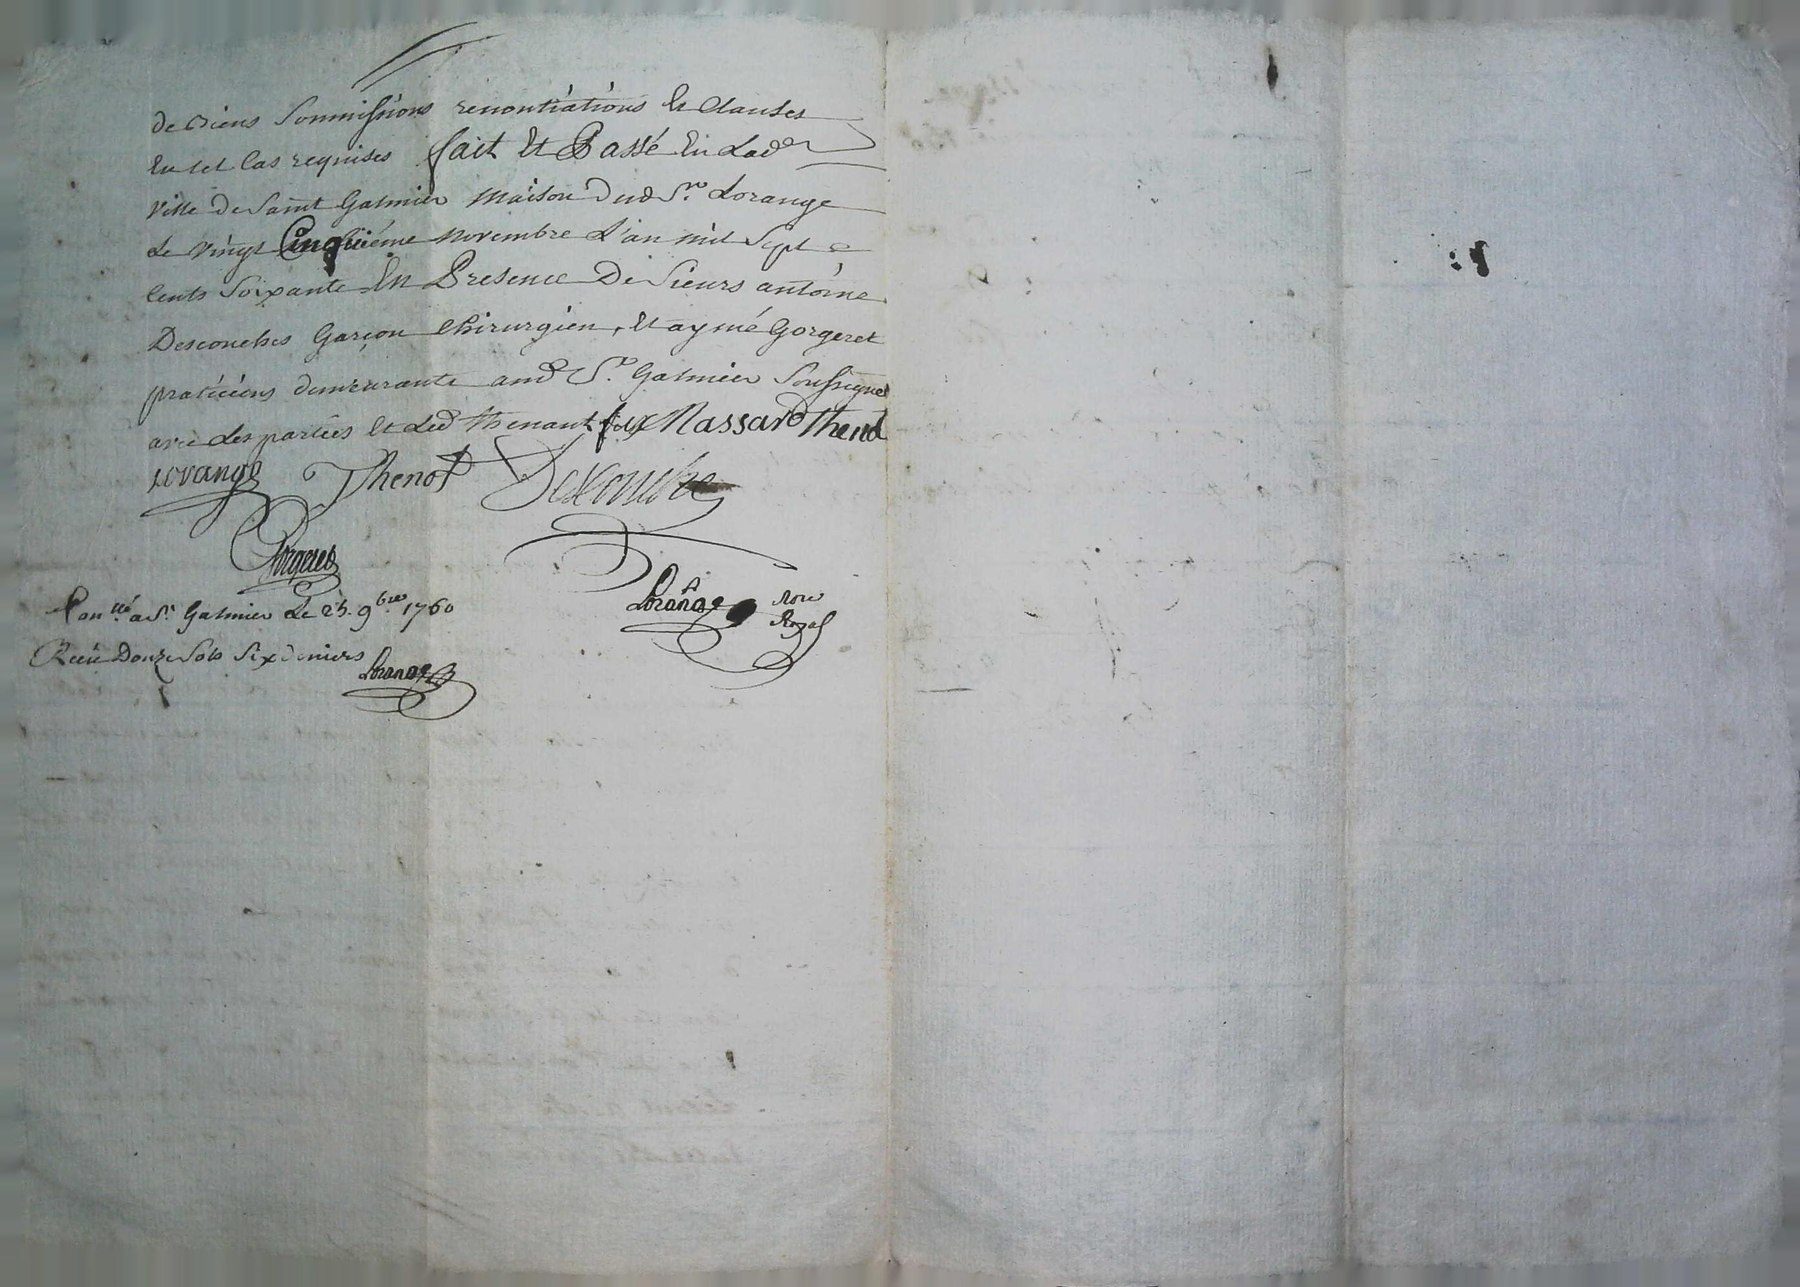 de biens sommissions renontiations Et Clauses
En tel Cas requises fait Et Passé En Lad.
Ville de Saint Galmier Maison dud Sr. Lorange
Le vingt Cinquiéme novembre L'an mil Sept
Cents Soixante En Presence De Sieurs antoine
Desconches Garçon Chirurgien, Et aymé Gorgeret
praticiens demeurants aud St. Galmier Soussignes
avec Les parties Et Led thenant Massard Thenot
Lorange Thenot Desconche
Gorgeret
Conllé a St Galmier Le 25. 9bre 1760
Lorange Nore
Royal
Reçu Douze Sols Six deniers
Lorange